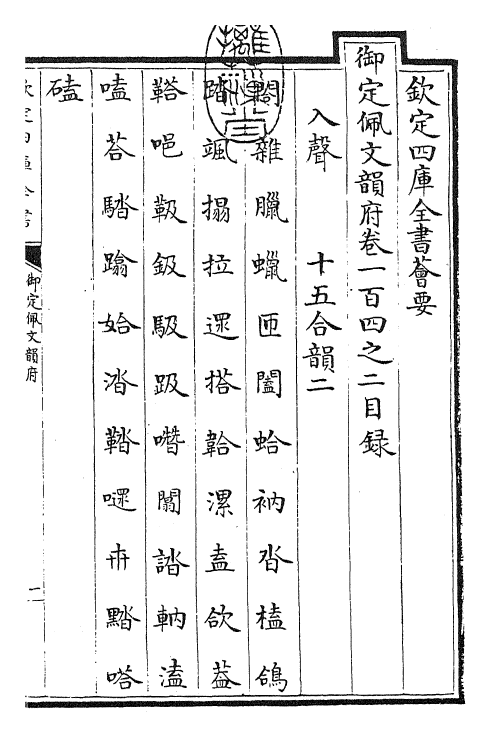 欽定四庫全書薈要
御定佩文韻府卷一百四之二目録
入聲 十五合韻二
閤雜臘蠟匝闔蛤衲沓榼鴿
踏颯搨拉遝搭韐漯盍欱葢
鞳唈靸鈒馺趿噆闒誻軜溘
嗑荅騇蹹姶涾鞜嚃卅黵嗒
磕
御定佩文韻府